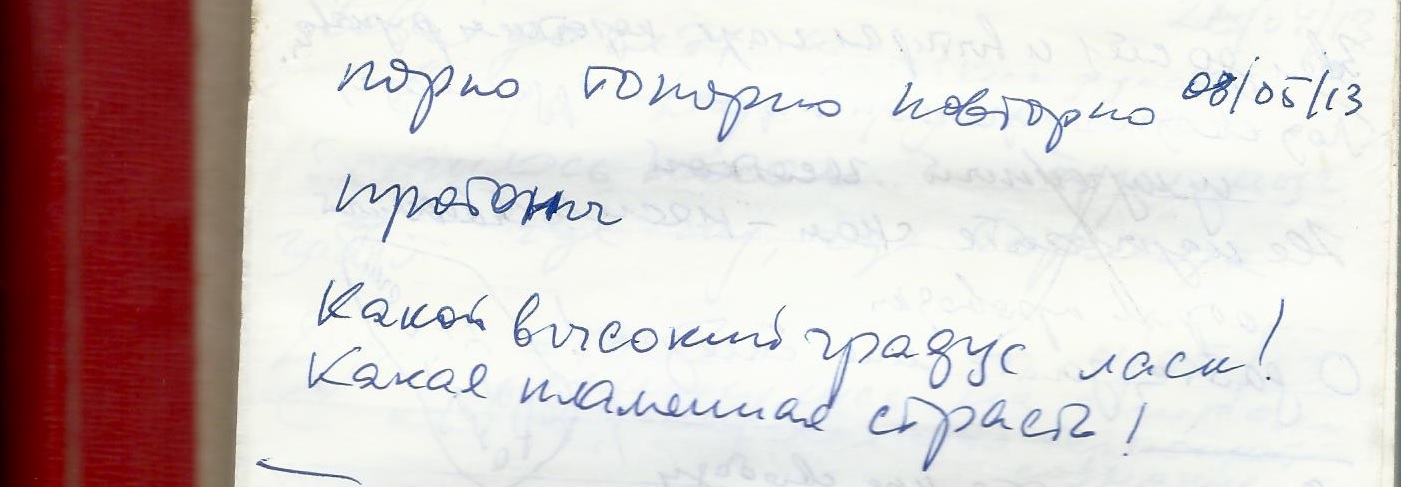 порно топорно повторно 08/05/13
Какой высокий градус ласк!
Какая пламенная страсть!